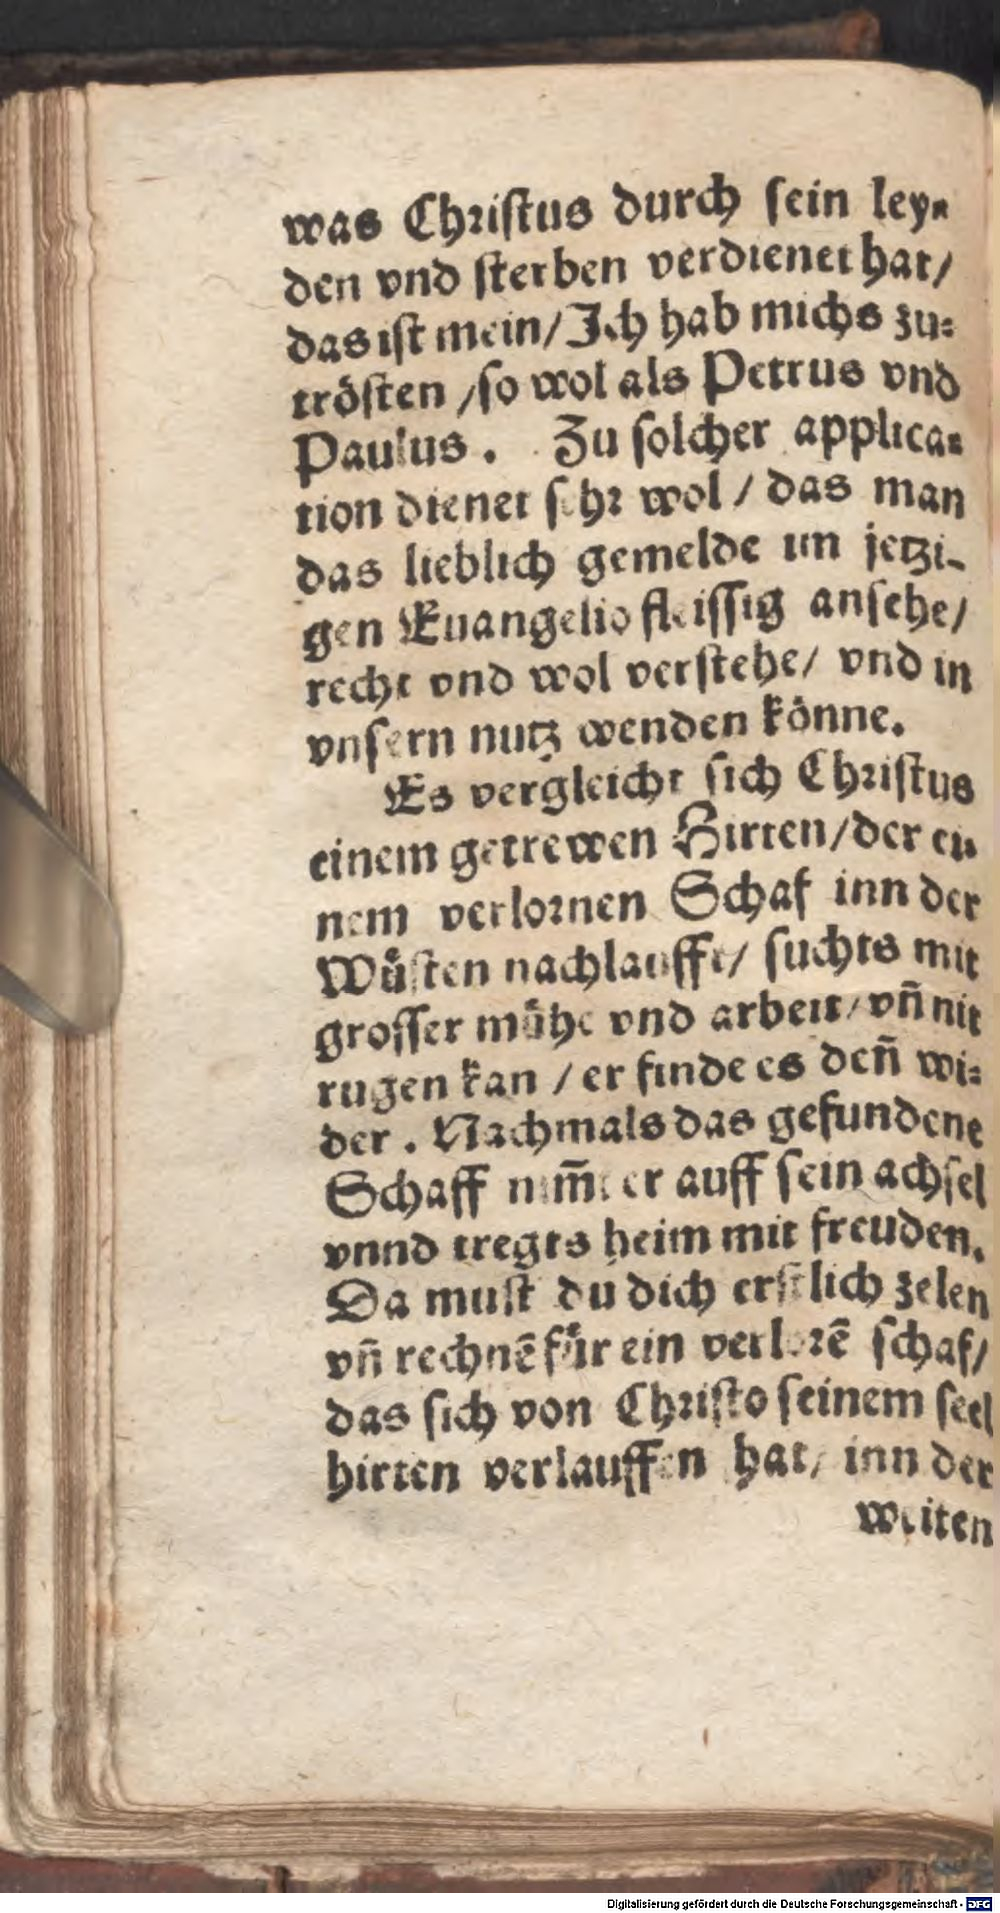 was Chriſtus durch ſein ley⸗
den vnd ſterben verdienet hat/
das iſt mein/Ich hab michs zu⸗
tröſten /ſo wol als Petrus vnd
Paulus. Zu ſolcher applica⸗
tion dienet ſehr wol / das man
das lieblich gemelde im jetzi⸗
gen Euangelio fleiſſig anſehe/
recht vnd wol verſtehe/ vnd in
vnſern nutz wenden könne.
Es vergleicht ſich Chriſtus
einem getrewen Hirten/der ei⸗
nem verlornen Schaf inn der
Wuͤſten nachlaufft/ ſuchts mit
groſſer muͤhe vnd arbeit/vñ nit
rugen kan / er finde es deñ wi⸗
der. Nachmals das gefundene
Schaff nim̃t er auff ſein achſel
vnnd tregts heim mit freuden.
Da muſt du dich erſtlich zelen
vñ rechnẽ fuͤr ein verlorẽ ſchaf/
das ſich von Chriſto ſeinem ſeel
hirten verlauffen hat/ inn der
weiten
Digitalisierung gefördert durch die Deutsche Forschungsgemeinschaft - DFG